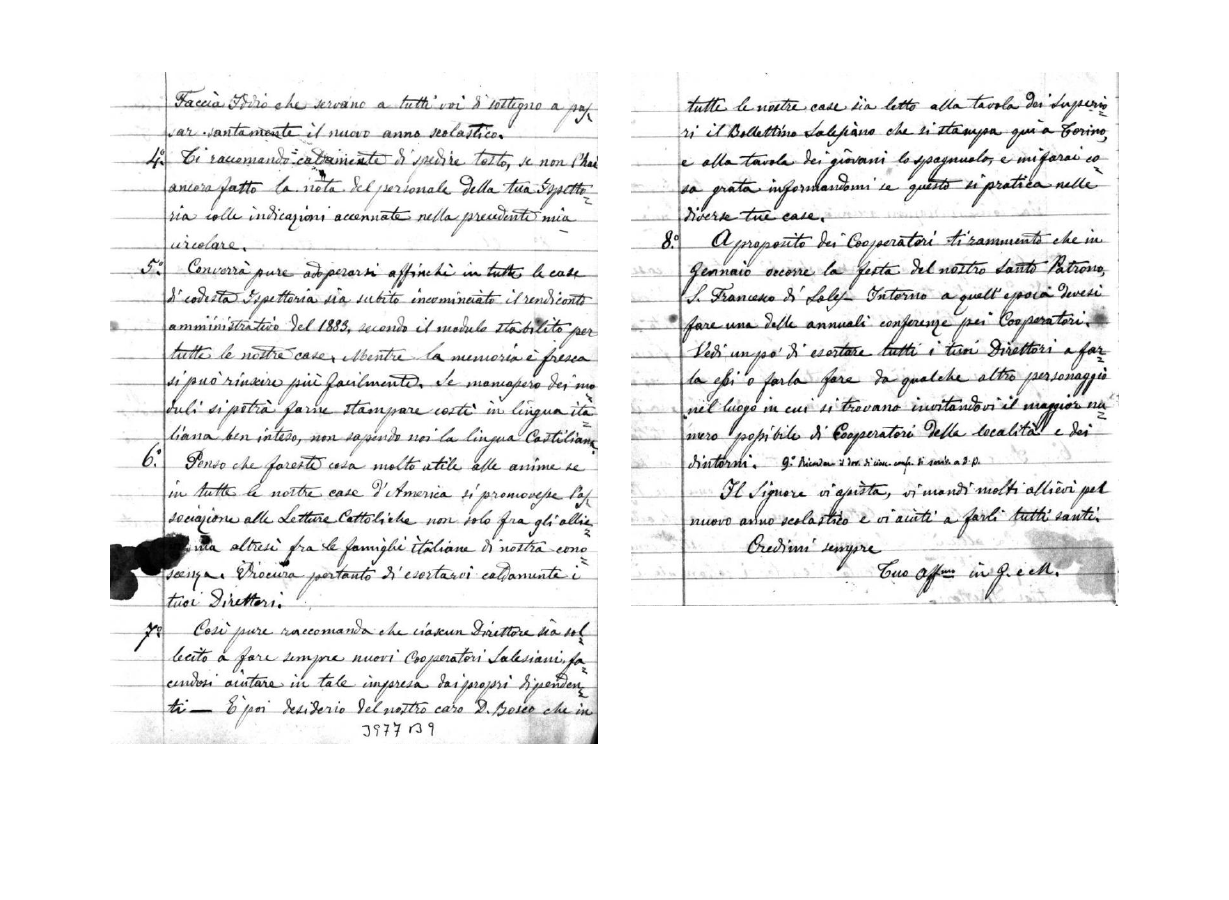 Faccia Iddio che servano a tutti voi di sostegno a pas=
sar santamente il nuovo anno scolastico.
4.° Ti raccomando caldamente di spedire tosto, se non l'hai
ancora fatto la nota del personale della tua Ispetto=
ria colle indicazioni accennate nella precedente mia
circolare.
5.° Converrà pure adoperarsi affinchè in tutte le case
di codesta Ispettoria sia subito incominciato il rendiconto
amministrativo del 1883, secondo il modulo stabilito per
tutte le nostre case. Mentre la memoria è fresca
si può riuscire più facilmente. Se mancassero dei mo=
duli si potrà farne stampare costì in lingua ita=
liana ben inteso, non sapendo noi la lingua Castigliana.
6.° Penso che fareste cosa molto utile alle anime se
in tutte le nostre case d'America si promovesse l'as=
sociazione alle Letture Cattoliche non solo fra gli allie=
ma altresì fra le famiglie italiane di nostra cono=
scenza. Procura pertanto di esortarvi caldamente i
tuoi Direttori.
7.° Così pure raccomanda che ciascun Direttore sia sol=
lecito a fare sempre nuovi Cooperatori Salesiani, fa=
cendosi aiutare in tale impresa dai propri dipenden=
ti — È poi desiderio del nostro caro D. Bosco che in
3977 B9
tutte le nostre case sia letto alla tavola dei Superio=
ri il Bollettino Salesiano che si stampa qui a Torino,
e alla tavola dei giovani lo spagnuolo, e mi farai co=
sa grata informandomi se questo si pratica nelle
diverse tue case.
8.° A proposito dei Cooperatori ti rammento che in
Gennaio occorre la festa del nostro Santo Patrono,
S. Francesco di Sales — Intorno a quell'epoca devesi
fare una delle annuali conferenze pei Cooperatori.
Vedi un po' di esortare tutti i tuoi Direttori a far=
la essi o farla fare da qualche altro personaggio
nel luogo in cui si trovano invitandovi il maggior nu=
mero possibile di Cooperatori della località e dei
dintorni. 9.° Ricorda il
Il Signore vi assista, vi mandi molti allievi pel
nuovo anno scolastico e vi aiuti a farli tutti santi.
Credimi sempre
Tuo Aff.mo in G. e M.